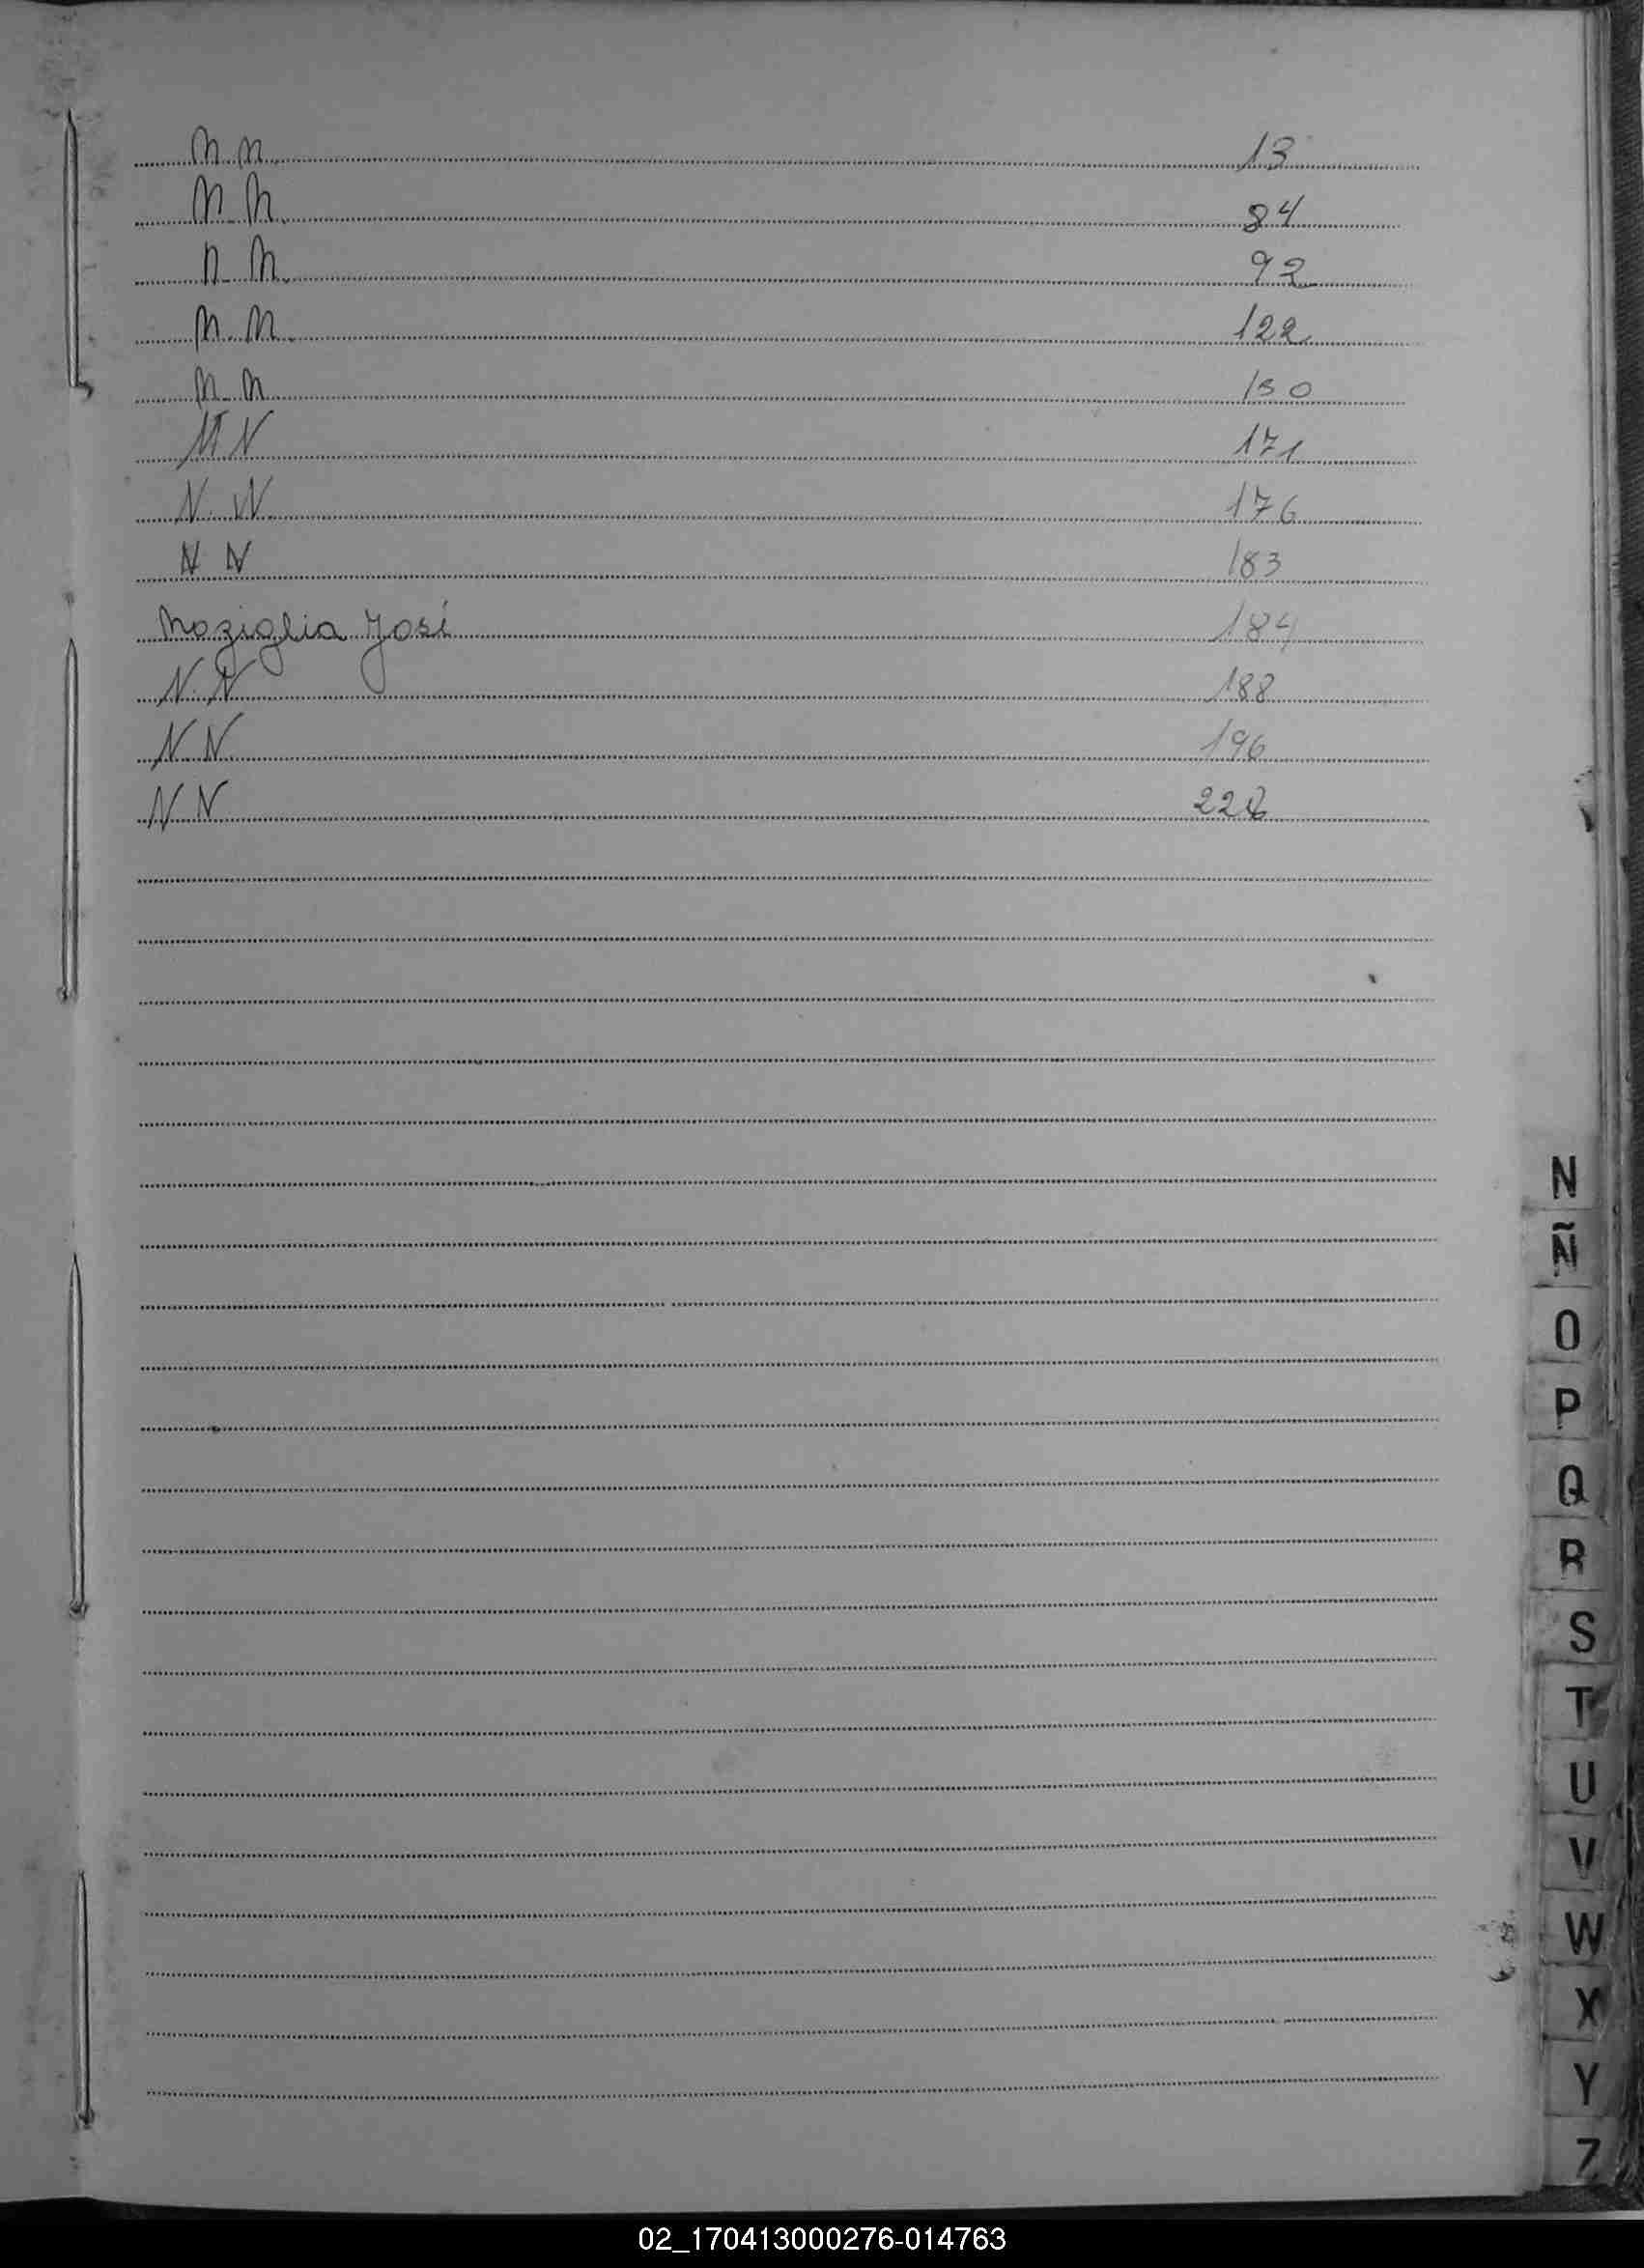 N. N. 13
N. N. 84
N. N. 92
N. N. 122
N. N. 130
N N 171
N. N. 176
N N 183
Noziglia José 184
N. N 188
N N. 196
N N 226
N
Ñ
O
P
Q
R
S
T
U
V
W
X
Y
Z
02_170413000276-014763